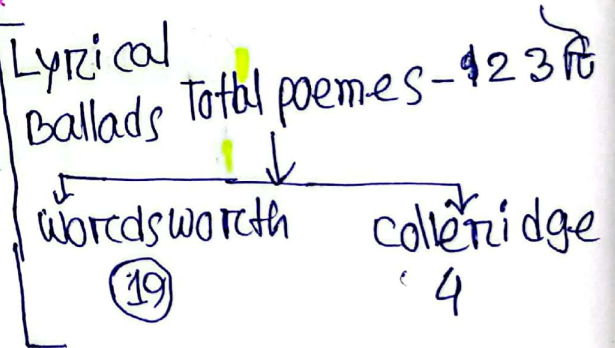 Lyrical
Ballads Total poemes-23 টি
Wordsworth Colleridge
19 4